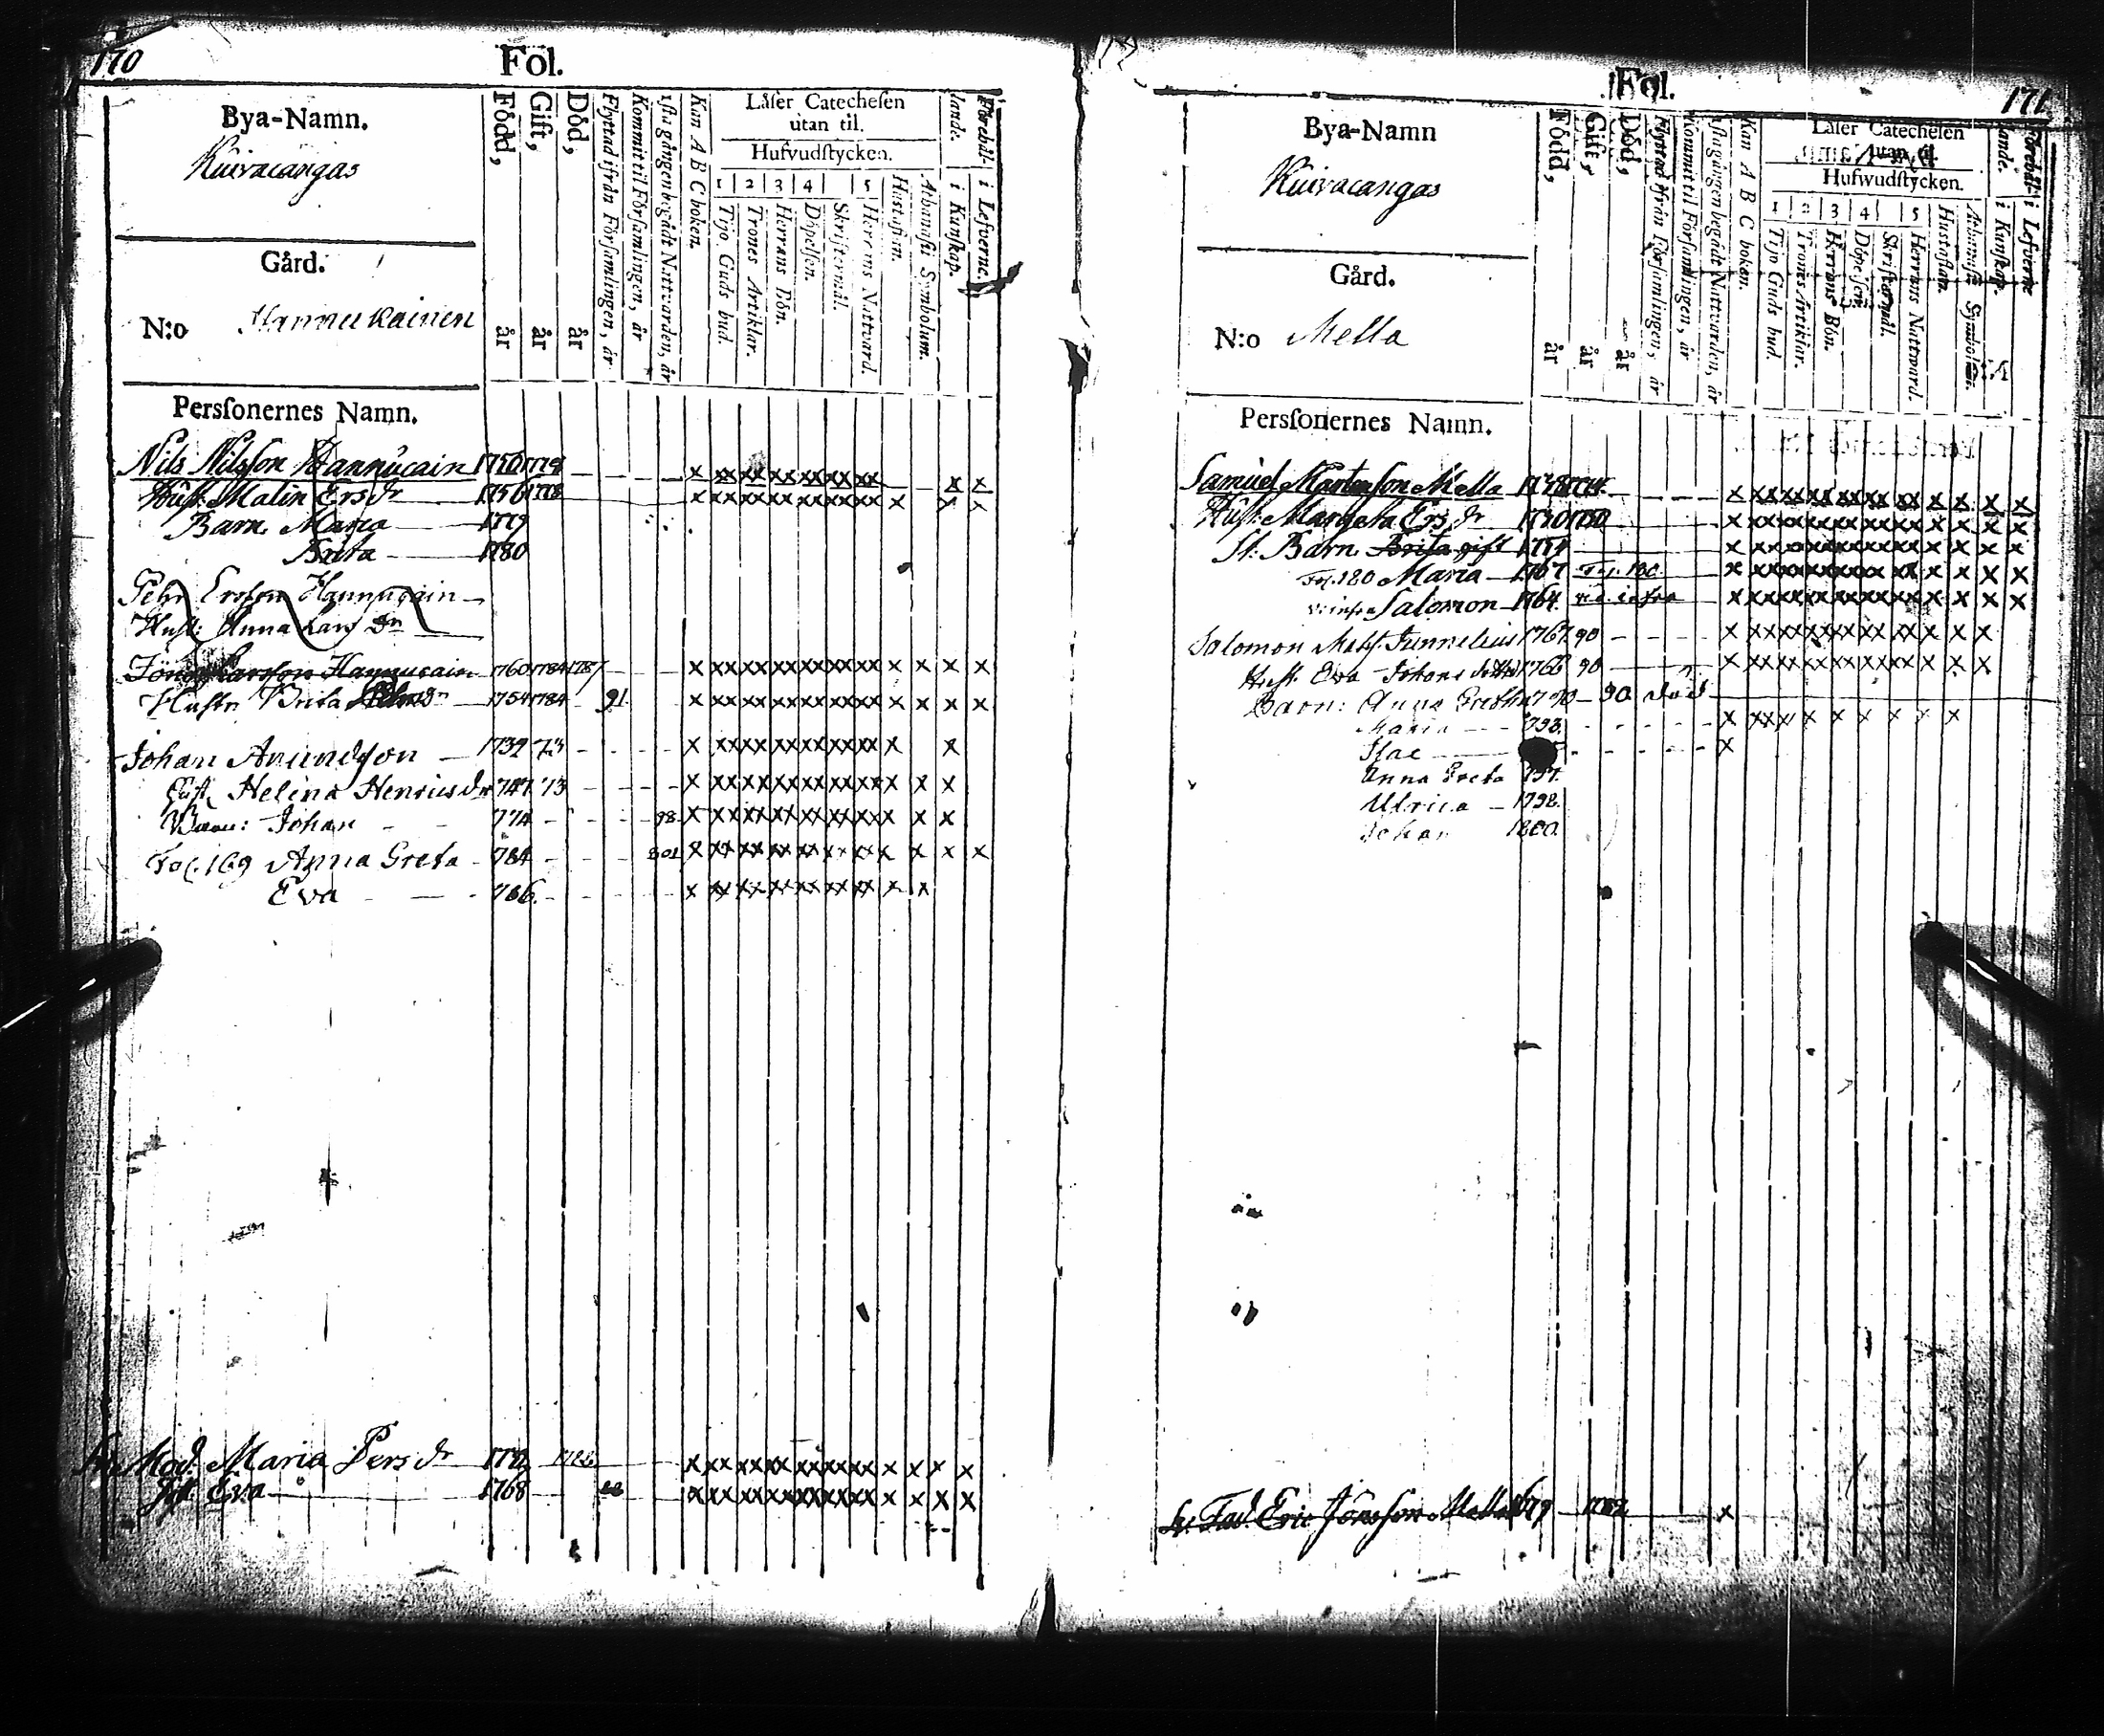 170
Fol.
Bya-Namn.
Kuivacangas
Gård.
N:o Hannukainen
Född, år
Gift, år
Död, år
Flyttad ifrån Församlingen, år
Kommit til Församlingen, år
1sta gången begådt Nattvarden, år
Kan A B C boken.
Låser Catechesen
utan til.
Hufvudstycken.
1 2 3 4 5
Tijo Guds bud.
Trones Artiklar.
Herrans Bön.
Döpelsen.
Skriftermål.
Herrans Nattvard.
Hustaflan.
Athanasii Symbolum.
Förehål-
lande.
i Kunskap.
i Lefverne.
Personernes Namn.
Nils Nilsson Hannucain 1750 1778
Hust. Malin Ersdr 1756 1778
Barn. Maria 1779
Brita 1780
Pehr Ersson Hannucain
Hust: Anna Lars dr
Jöns Larsson Hannucain 1760 1784 1787
Hustr Brita 1754 1784 91
Johan Anundson 1739 73
Hust. Helena Henricsdr 747 73
Barn: Johan 774 98
Fol. 169 Anna Greta 784 801
Eva 786
Mod. Maria Persdr
Eva 1768
Fol.
171
Bya-Namn
Kuivacangas
Gård.
N:o Mella
Född, år
Gift, år
Död, år
Flyttad ifrån Församlingen, år
Kommit til Församlingen, år
1sta gången begådt Nattvarden, år
Kan A B C boken.
Låser Catechesen
utan til.
Hufwudstycken.
1 2 3 4 5
Tijo Guds bud.
Trones Artiklar.
Herrans Bön.
Döpelsen.
Skriftermål.
Herrans Nattward.
Hustaflan.
Athanasii Symbolum.
Förehål-
lande.
i Kunskap.
i Lefverne
Personernes Namn.
Samuel Mårtenson Mella
Hust: Margeta Ersdr
St. Barn. Brita gift
Fol. 180 Maria 1767 Fol. 180
Salomon 1764 vid. infra
Salomon Mats. Junnelius 1767 90
Hust. Eva Johans 1766 90
Barn: Anna Greta 1790 90 död
Maria 793
Isac
Anna Greta 797
Ulrica 1798
Johan 1800
Fad. Eric Jönsson Mella